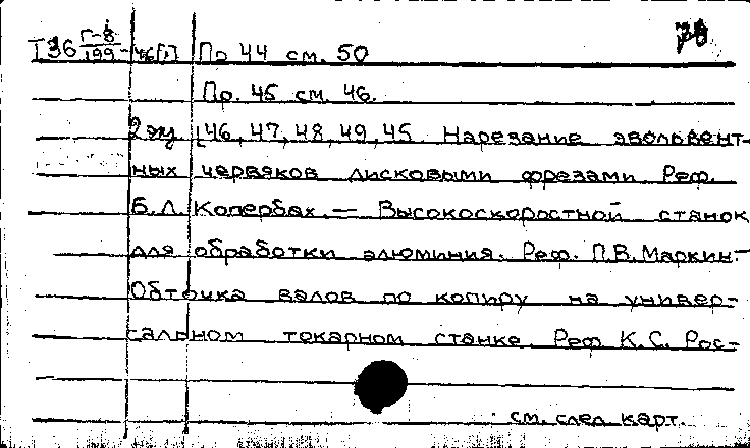 Т36 Г-8/199 -46[1] По 44 см. 50
Пр. 45 см. 46.
2 эк. [46, 47, 48, 49, 45 Нарезание эвольвент-
ных червяков дисковыми фрезами Реф.
Б.Л. Копербах. — Высокоскоростной станок
для обработки алюминия. Реф. П.В. Маркин. -
Обточка валов по копиру на универ-
сальном токарном станке Реф К.С. Рос-
см. след карт.